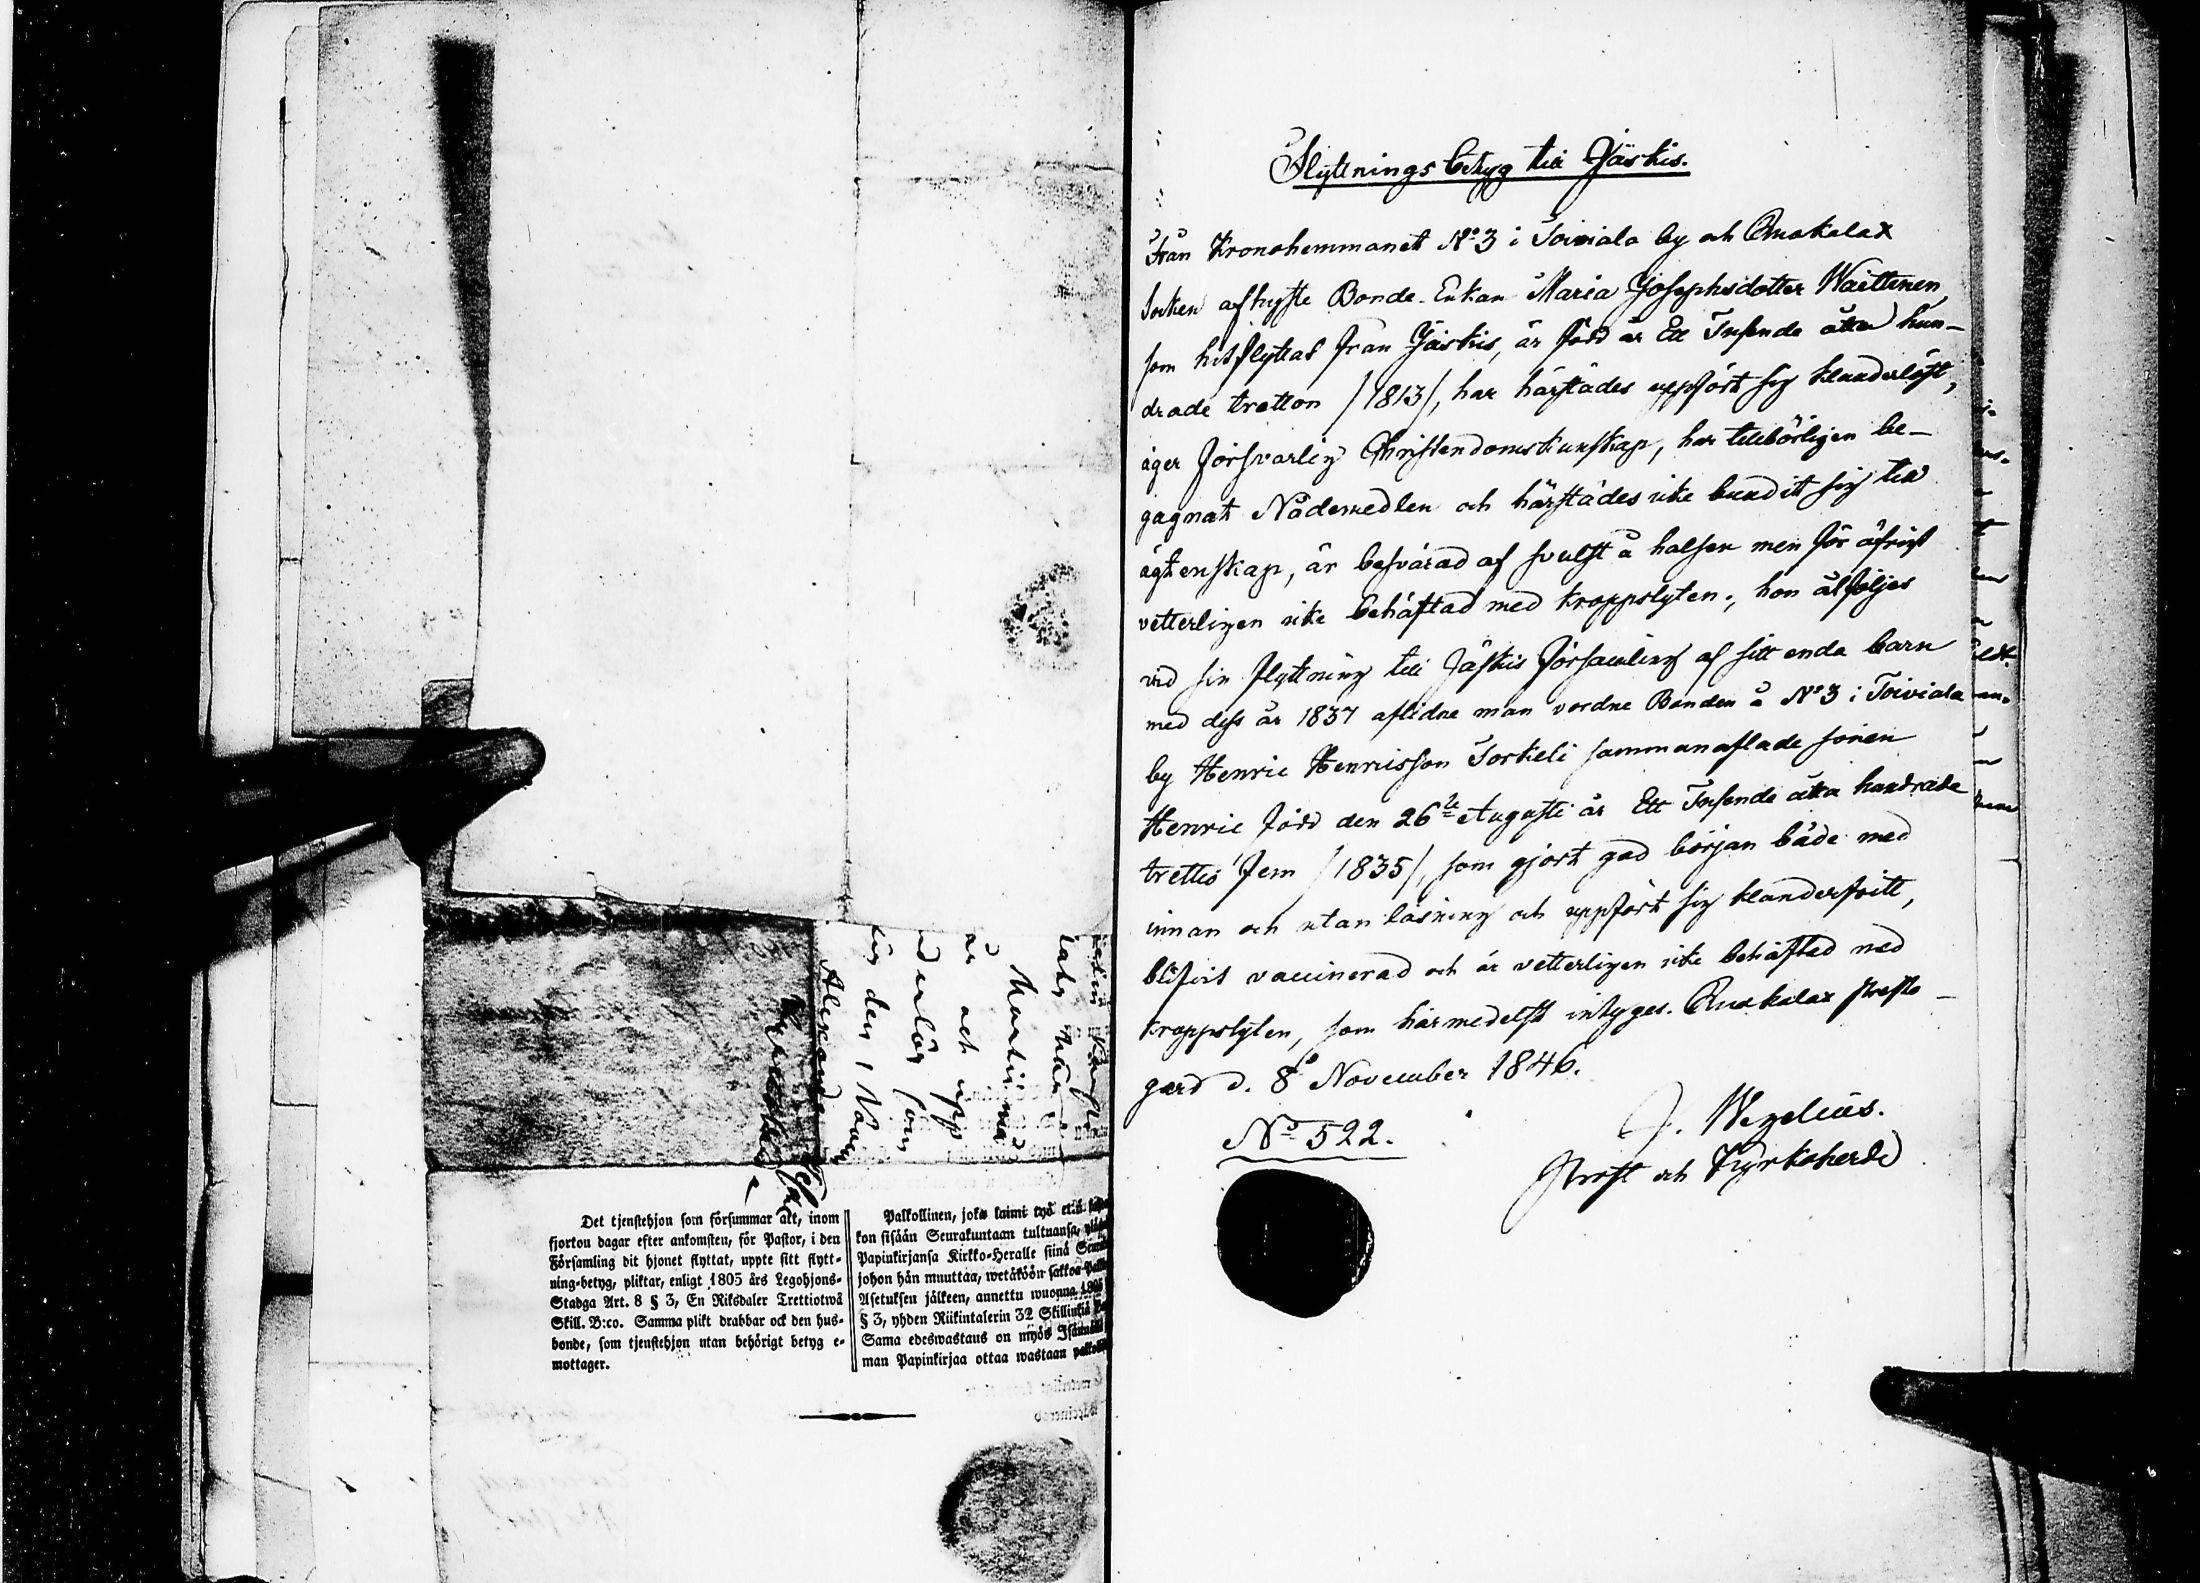 Det tjenstehjon som försummar att, inom
fjorton dagar efter ankomsten, för Pastor, i den
Församling dit hjonet flyttat, uppte sitt flytt-
ning-betyg, pliktar, enligt 1805 års Legohjons-
Stadga Art. 8 § 3, En Riksdaler Trettiotwå
Skill. B:co. Samma plikt drabbar ock den hus-
bonde, som tjenstehjon utan behörigt betyg e-
mottager.
Palkollinen, joka laimi lyö
kon sisään Seurakuntaan tultuansa,
Papinkirjansa Kirkko-Heralle siinä
johon hän muuttaa, wetäköön sakkoa
Asetuksen jälkeen, annettu wuonna 1805
§ 3, yhden Riikintalerin 32 Skillinkiä
Sama edeswastaus on myös
man Papinkirjaa ottaa wastaan
år och upp
som
den 1 Nov
Flyttningsbetyg till Jäskis.
Från Kronohemmanet No 3 i Toiviala by och Ruokolax
Socken afflyttade Bonde-Enkan Maria Josephsdotter Waittinen,
som hitflyttat från Jäskis, är född år Ett Tusende åtta hun-
drade tretton /1813/, har härstädes uppfört sig klanderlöst,
äger försvarlig Christendomskunskap, har tillbörligen be-
gagnat Nådemedlen och härstädes icke bundit sig till
ägtenskap, är besvärad af svulst å halsen men för öfrigt
vetterligen icke behäftad med kroppslyten; hon åtföljes
vid sin flyttning till Jäskis Församling af sitt enda barn
med dess år 1837 aflidne man vordne Bonden å No 3 i Toiviala
by Henric Henricsson Torkeli sammanaflade sonen
Henric född den 26te Augusti år Ett Tusende åtta hundrade
trettio fem /1835/, som gjort god början både med
innan och utan läsning och uppfört sig klanderfritt,
blifvit vaccinerad och är vetterligen icke behäftad med
kroppslyten, som härmedelst intyges. Ruokolax Prosto-
gård d. 8 November 1846.
No 522.
J. Wegelius.
Prost och Kyrkoherde